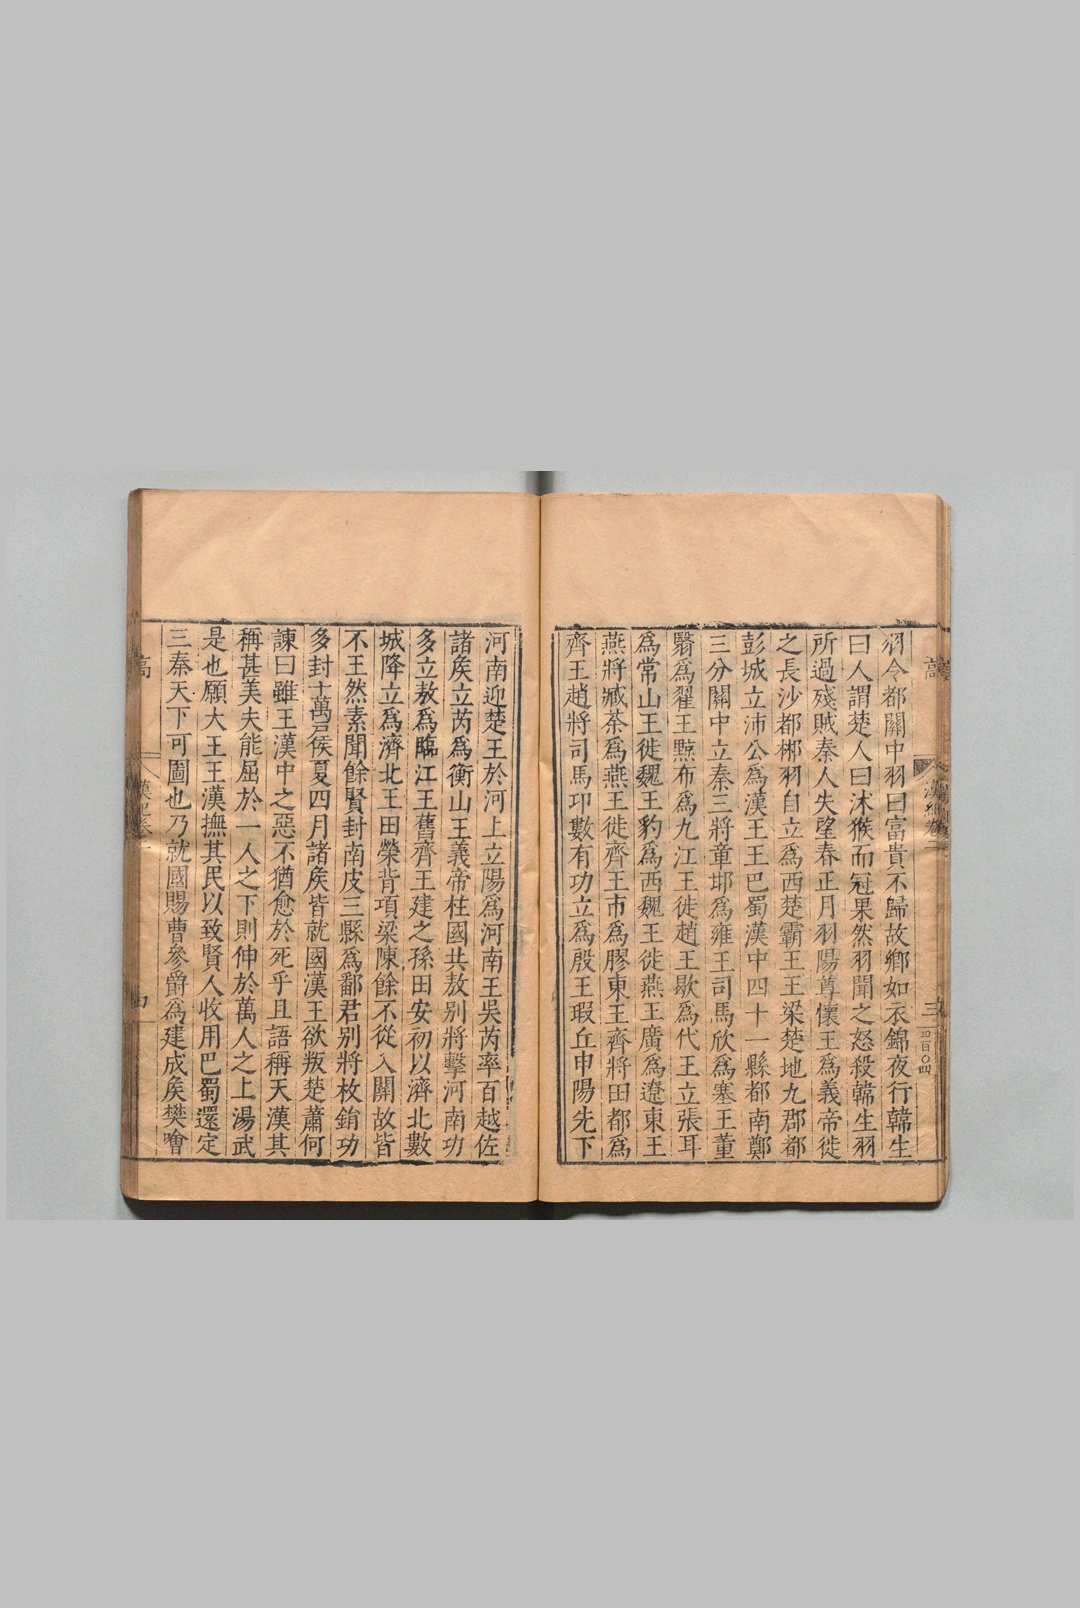 羽令都關中羽曰富貴不歸故鄉如衣錦夜行韓生
曰人謂楚人曰沐猴而冠果然羽聞之怒殺韓生羽
所過殘賊秦人失望春正月羽陽尊懷王爲義帝徙
之長沙都郴羽自立爲西楚霸王王梁楚地九郡都
彭城立沛公爲漢王王巴蜀漢中四十一縣都南鄭
三分關中立秦三將章邯爲雍王司馬欣爲塞王董
翳爲翟王黥布爲九江王徙趙王歇爲代王立張耳
爲常山王徙魏王豹爲西魏王徙燕王廣爲遼東王
燕將臧荼爲燕王徙齊王市爲膠東王齊將田都爲
齊王趙將司馬卬數有功立爲殷王瑕丘申陽先下
河南迎楚王於河上立陽爲河南王吳芮率百越佐
諸矦立芮爲衡山王義帝柱國共敖别將擊河南功
多立敖爲臨江王舊齊王建之孫田安初以濟北數
城降立爲濟北王田榮背項梁陳餘不從入關故皆
不王然素聞餘賢封南皮三縣爲鄱君别將枚鋗功
多封十萬戶侯夏四月諸矦皆就國漢王欲叛楚蕭何
諫曰雖王漢中之惡不猶愈於死乎且語稱天漢其
稱甚美夫能屈於一人之下則伸於萬人之上湯武
是也願大王王漢撫其民以致賢人收用巴蜀還定
三秦天下可圖也乃就國賜曹參爵爲建成矦樊噲